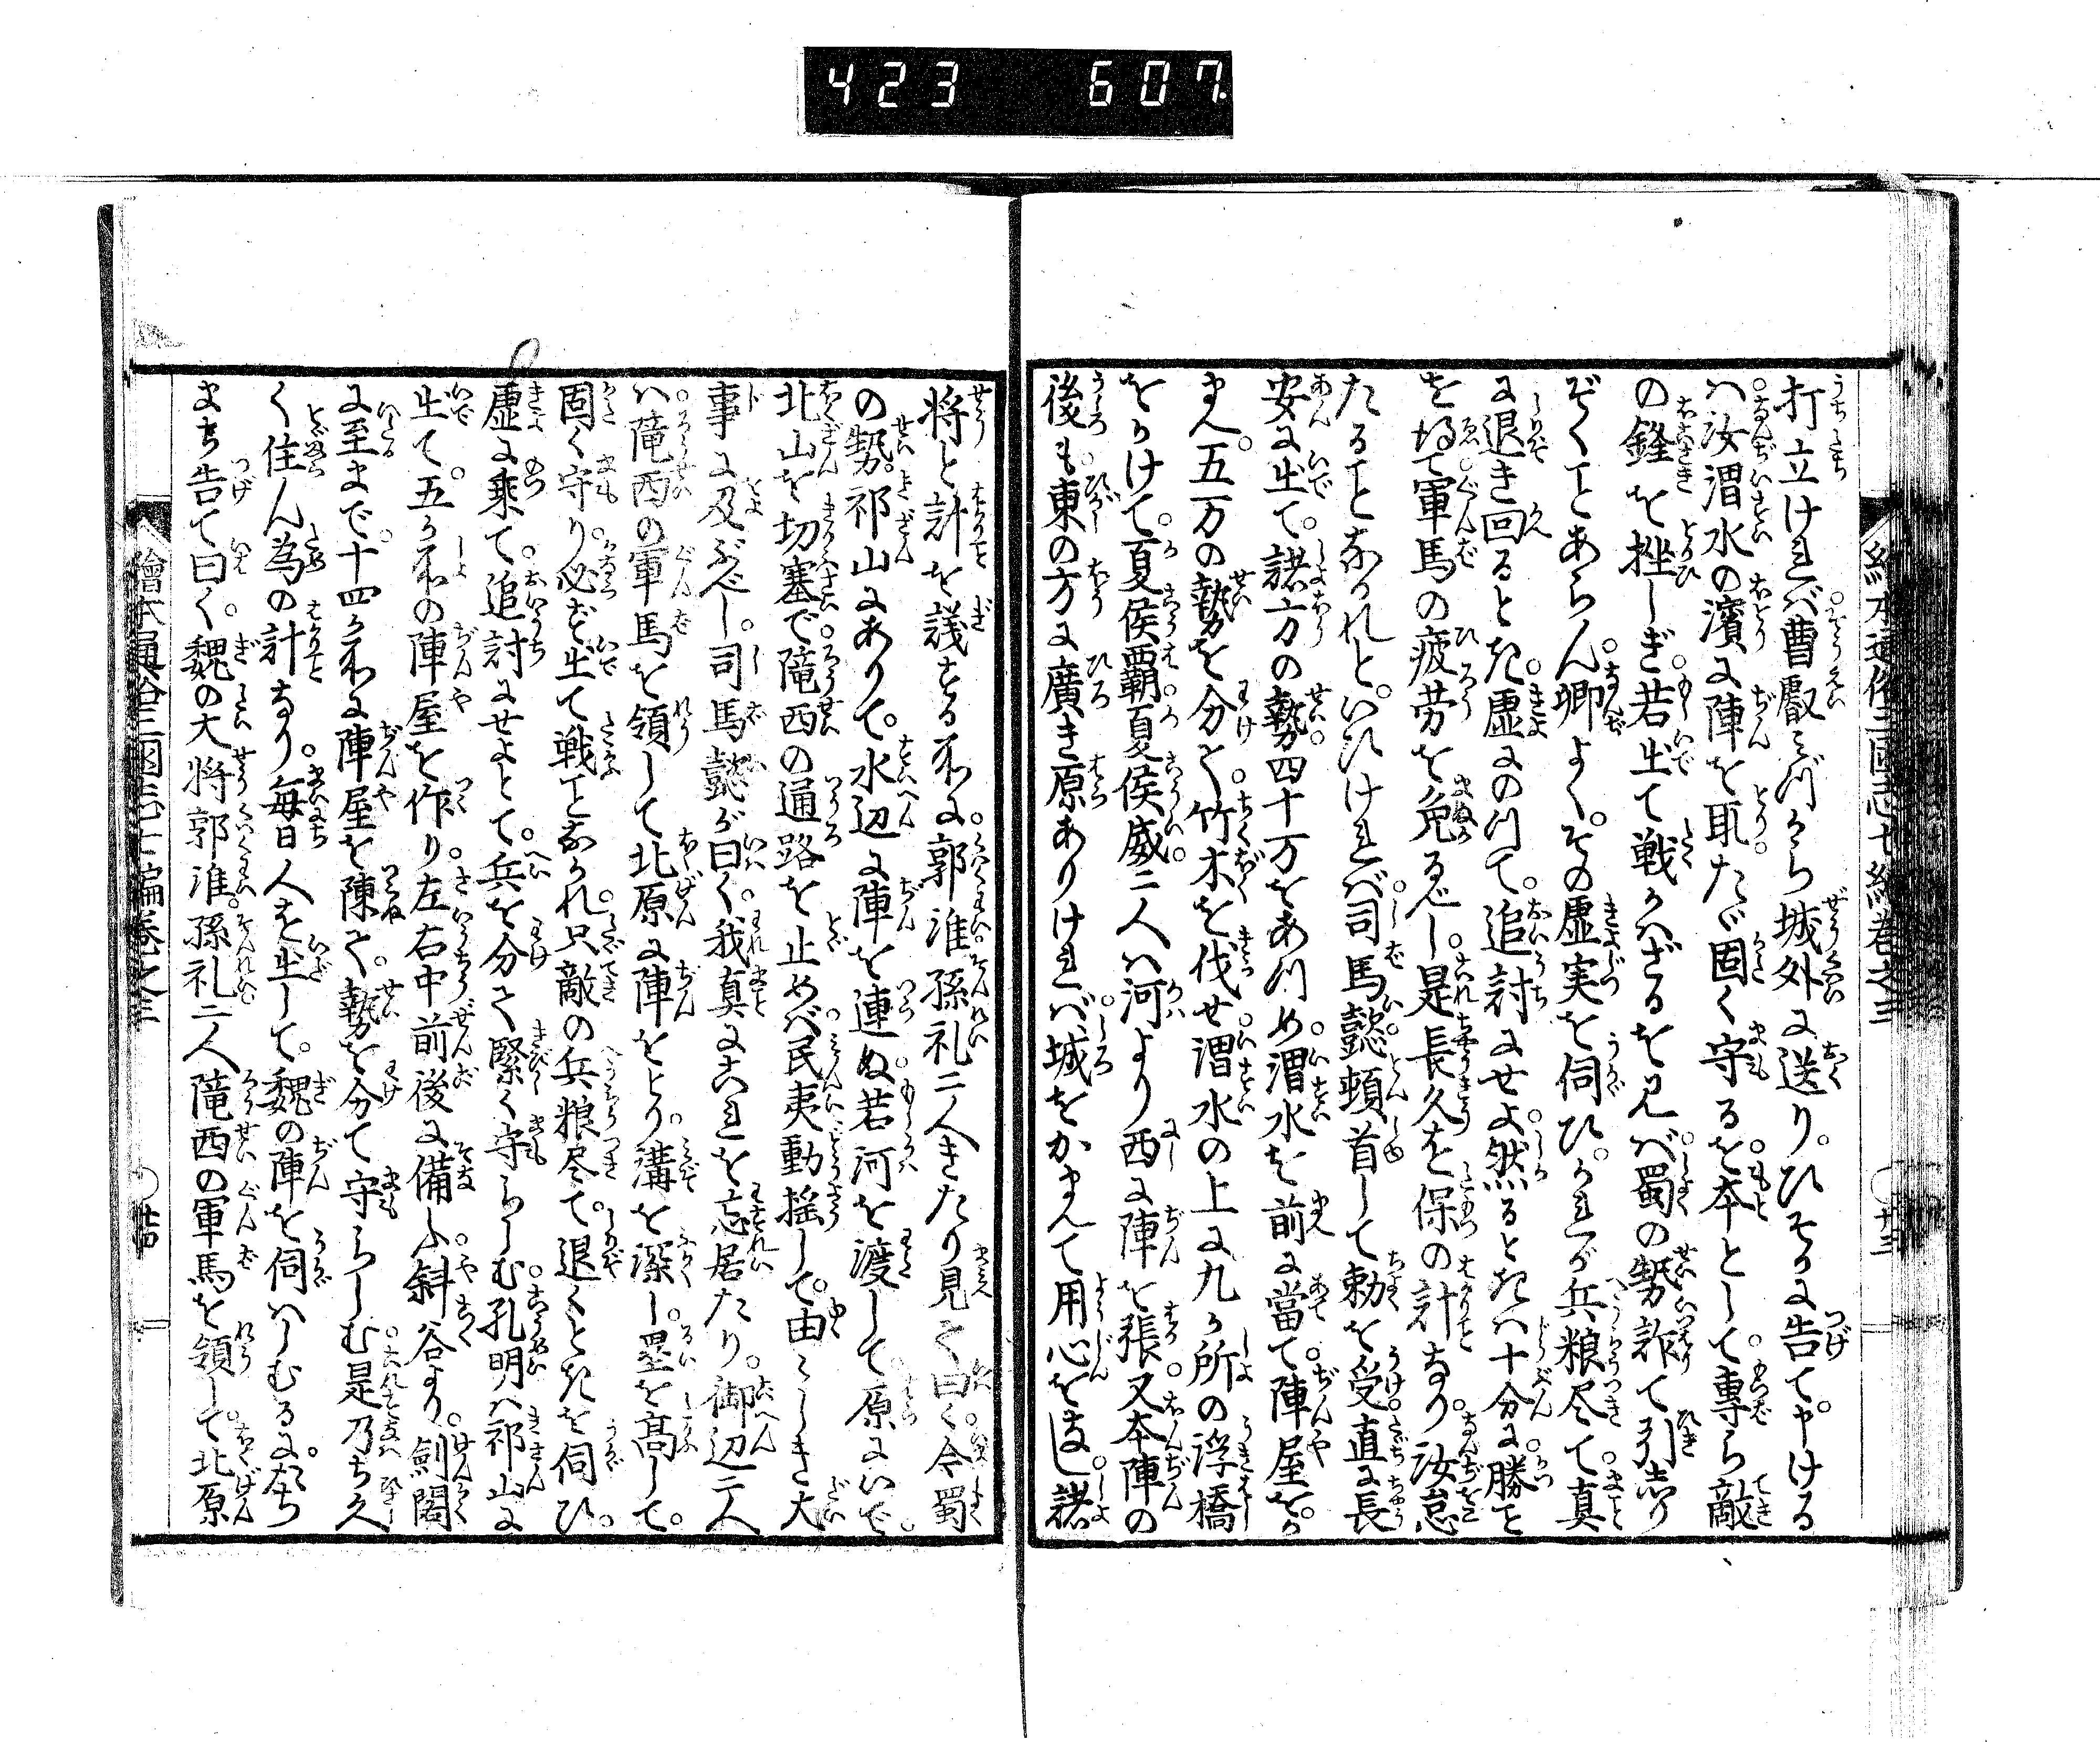 423 607
繪本通俗三國志七編卷之三 ○十三
打立けれバ曹叡ミづから城外に送り。ひそかに告て。申ける
ハ汝渭水の濱に陣を取。たゞ固く守るを本として。専ら敵
の鋒を挫しぎ。若出て戦かハざるを見バ。蜀の勢詐て引しり
ぞくことあらん。卿よく。その虚実を伺ひ。かれが兵粮尽て真
に退き回るとき。虚にのつて。追討にせよ。然るときハ十分に勝を
を得て軍馬の疲労を免るべし。是長久を保の計なり。汝怠
たることなかれと。いひけれバ。司馬懿。頓首して勅を受。直に長
安に出て。諸方の勢四十万をあつめ。渭水を前に當て。陣屋を。か
まへ。五万の勢を分て。竹木を伐せ。渭水の上に九ヶ所の浮橋
をかけて。夏侯覇。夏侯威。二人ハ河より西に陣を張。又本陣の
後も。東の方に廣き原ありけれバ。城をかまへて用心をなし。諸
将と計を議する所に。郭淮。孫礼二人きたり見て曰く。今蜀
の勢。祁山にありて。水辺に陣を連ぬ。若河を渡して。原にいで。
北山を切塞で隴西の通路を止めバ。民夷動揺して。由ゝしき大
事に及ぶべし。司馬懿が曰く。我真にこれを忘居たり。御辺二人
ハ隴西の軍馬を領して北原に陣をとり。溝を深し。塁を高して。
固く守り。必ず出て戦ことなかれ。只敵の兵粮尽て。退くときを伺ひ。
虚に乗て。追討にせよとて。兵を分て緊く守らしむ。孔明ハ祁山に
出て。五ヶ所の陣屋を作り。左右中前後に備ふ。斜谷より。劍閣
に至まで。十四ヶ所に陣屋を陳て。勢を分て守らしむ。是乃ち久
く住ん為の計なり。毎日人を出して。魏の陣を伺ハしむるに。たち
まち告て曰く。魏の大将郭淮。孫礼二人隴西の軍馬を領して。北原
繪本通俗三國志七編卷之三 ○廿四